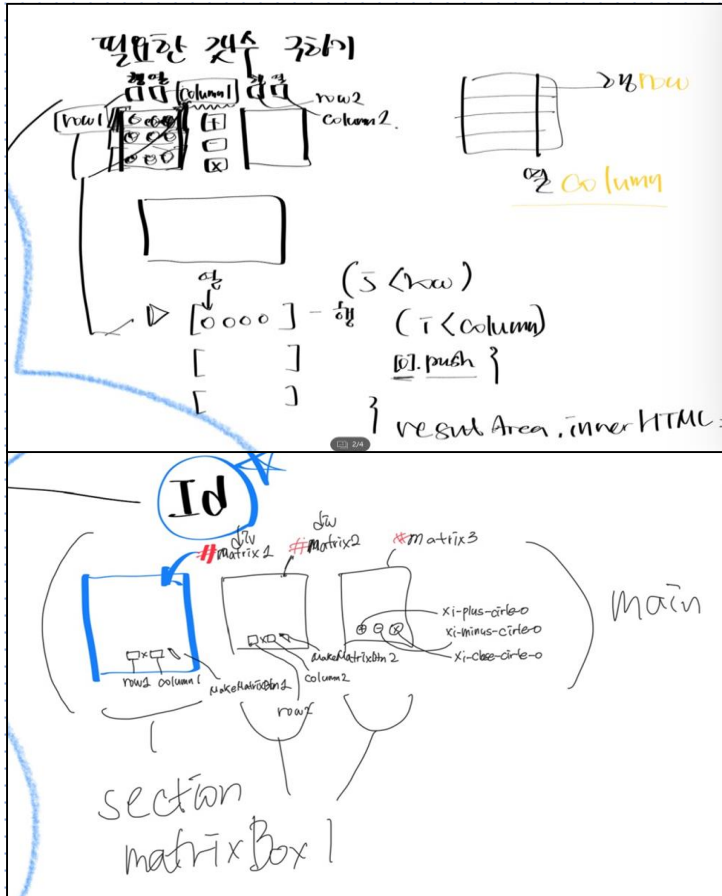 필요한 갯수 구하기
행 열
column1
행 열
row2
column2.
row1
+
-
x
행 row
열 column
열
[0000] - 행
(j<row)
(i<column)
[0].push }
} resultArea.innerHTML =
2/4
Id
div
#matrix1
div
#matrix2
#matrix3
main
xi-plus-cirle-o
xi-minus-cirle-o
xi-close-cirle-o
x
row1 column1
MakeMatrixBtn1
x
MakeMatrixBtn2
column2
row2
section
matrixBox1